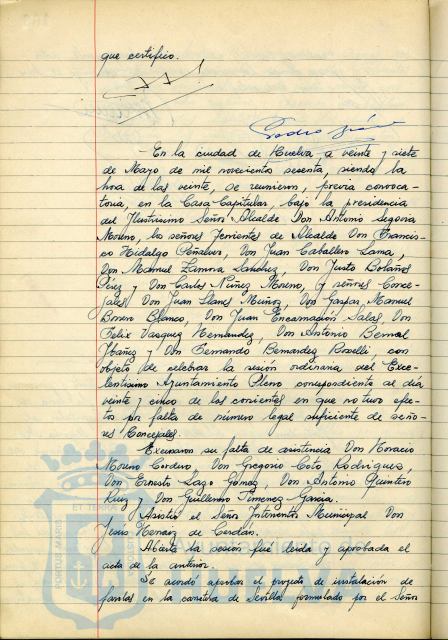 que certifico.
Pedro
-En la ciudad de Huelva a veinte y siete
de Mayo de mil novecientos sesenta, siendo la
hora de las veinte, se reunieron, previa convoca-
toria, en la Casa Capitular, bajo la presidencia
del Ilustrísimo Señor Alcalde Don Antonio Segovia
Moreno, los señores Tenientes de Alcalde Don Francis-
co Hidalgo Peñalver, Don Juan Caballero Lama,
Don Manuel Limon Sanchez, Don Justo Bolaños
Pérez y Don Carlos Núñez Moreno, y señores Conce-
jales Don Juan Llanes Muñoz, Don Gaspar Manuel
Borrero Blanco, Don Juan Encarnación Salas, Don
Felix Vazquez Hernandez, Don Antonio Bernal
Ybañez y Don Fernando Bernardez Roselli con
objeto de celebrar la sesión ordinaria del Exce-
lentísimo Ayuntamiento Pleno correspondiente al día
veinte y cinco de los corrientes en que no tuvo efec-
to por falta de número legal suficiente de seño-
res Concejales.
Excusaron su falta de asistencia Don Horacio
Moreno Cordero, Don Gregorio Coto Rodrigues,
Don Ernesto Lazo Gómez, Don Antonio Quintero
Ruiz y Don Guillermo Jimenez Garcia.
Asistió el Señor Interventor Municipal Don
Jesús Henaiz de Cerdán.
Abierta la sesión fue leida y aprobada el
acta de la anterior.
Se acordó aprobar el proyecto de instalación de
farolas en la carretera de Sevilla formulado por el Señor
PORTUS MARIS ET TERRAE CUSTODIA